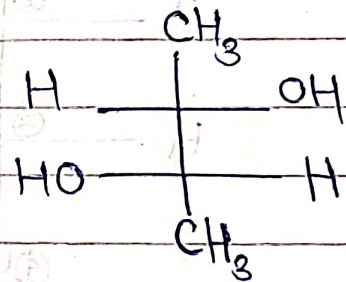 CH3
H OH
HO H
CH3